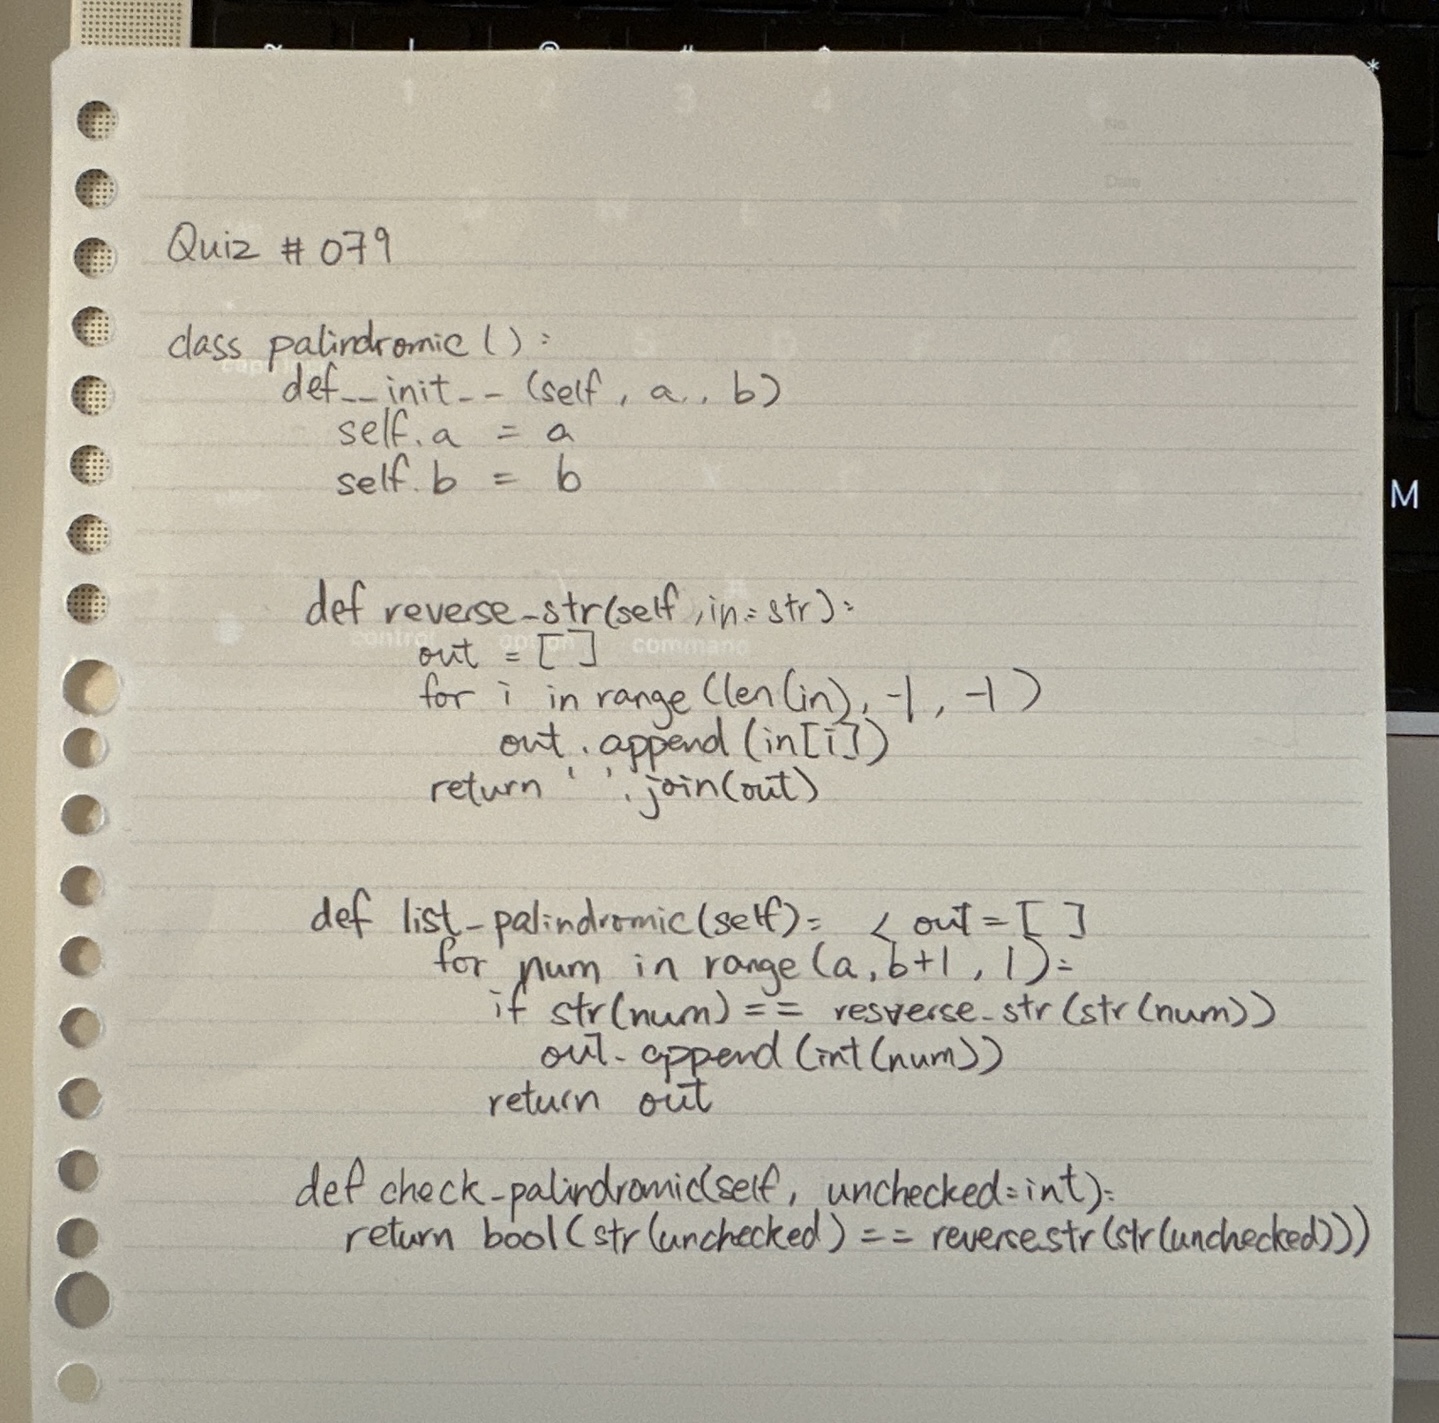 Quiz # 079
class palindromic ():
def __init__ (self, a, b)
self.a = a
self.b = b
def reverse_str(self, in: str):
out = []
for i in range (len(in), -1, -1)
out.append(in[i])
return ' '.join(out)
def list_palindromic(self): < out = []
for num in range (a, b+1, 1):
if str(num) == resverse_str(str(num))
out.append(int(num))
return out
def check_palindromic(self, unchecked: int):
return bool(str(unchecked) == reverse_str(str(unchecked)))
No.
Date
control option command
M
*